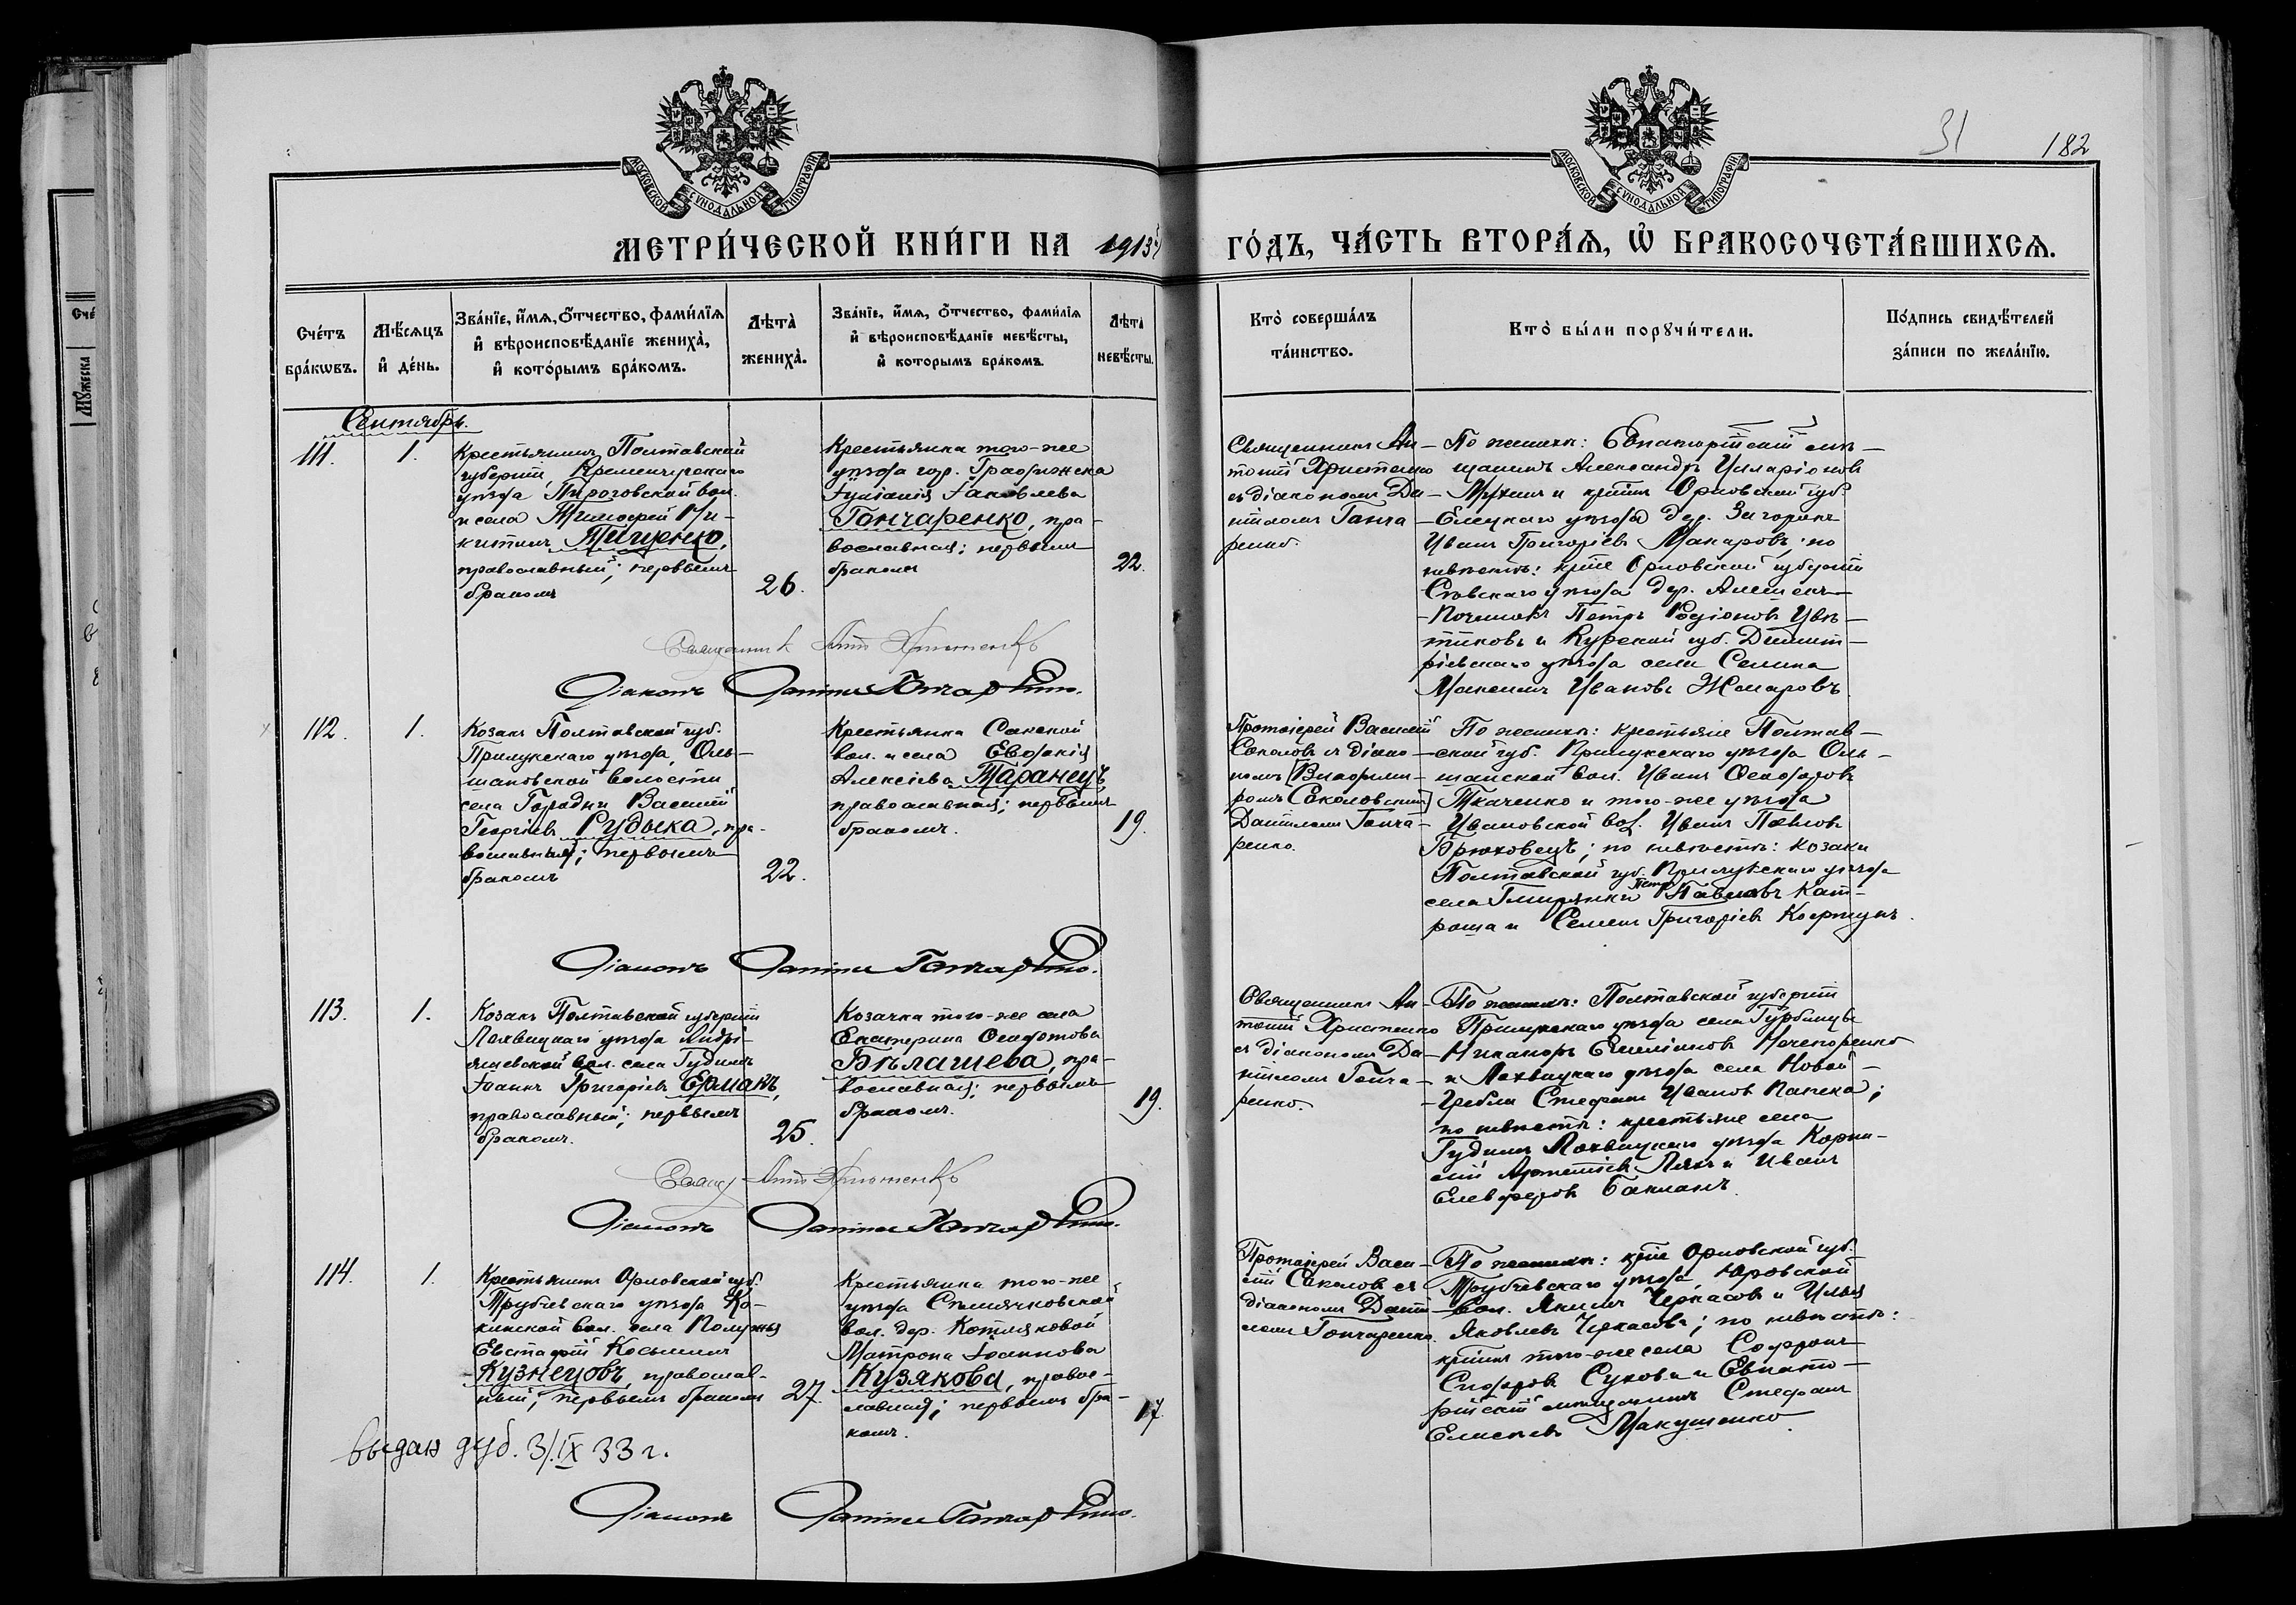 МОСКОВСКОЙ СѴНОДАЛЬНОЙ ТИПОГРАФІИ
МОСКОВСКОЙ СѴНОДАЛЬНОЙ ТИПОГРАФІИ
31
182
МЕТРИ́ЧЕСКОЙ КНИ́ГИ НА 1913й
ГО́ДЪ, ЧА́СТЬ ВТОРА́Я, Ѡ҆ БРАКОСОЧЕТА́ВШИХСЯ.
Сче́тъ бра́кѡвъ.
Мѣ́сяцъ и҆ де́нь.
Зва́нїе, и҆́мя, ѻ҆́тчество, фами́лїя и҆ вѣроисповѣ́данїе жениха̀, и҆ кото́рымъ бра́комъ.
Лѣта̀ жениха̀.
Зва́нїе, и҆́мя, ѻ҆́тчество, фами́лїя и҆ вѣроисповѣ́данїе невѣ́сты, и҆ которымъ бра́комъ.
Лѣта̀ невѣ́сты.
Кто̀ соверша́лъ та́инство.
Кто̀ бы́ли порꙋчи́тели.
По́дпись свидѣ́телей за́писи по жела́нїю.
Сентябрь.
111.
1.
Крестьянинъ Полтавской
губерніи, Кременчугскаго
уѣзда, Пироговской вол.
и села Тимофей Ни-
китинъ Тищенко,
православный; первымъ
бракомъ
26.
Крестьянка того-же
уѣзда гор. Градижска
Іуліанія Іаковлева
Гончаренко, пра-
вославная; первымъ
бракомъ
22.
Священникъ Ан-
тоній Христенко
съ діакономъ Да-
ніиломъ Гонча-
ренко.
По женихѣ: Евпаторійскій мѣ-
щанинъ Александръ Илларіоновъ
и кр-нинъ Орловской губ.
Елецкаго уѣзда дер.
Иванъ Григорьевъ Макаровъ; по
невѣстѣ: кр-не Орловской губерніи
Сѣвскаго уѣзда дер.
Починокъ Петръ Родіоновъ Цвѣ-
тковъ и Курской губ. Дмит-
ріевскаго уѣзда села Селина
Максимъ Ивановъ Жмаровъ.
Священникъ Ант Христенко
Діаконъ Даніилъ Гончаренко.
112.
1.
Козакъ Полтавской губ.
Прилукскаго уѣзда, Оль-
шановской волости
села Городни Василій
Георгіевъ Рудыка, пра-
вославный; первымъ
бракомъ
22.
Крестьянка Сакской
вол. и села Евдокія
Алексіева Таранецъ
православная; первымъ
бракомъ.
19.
Протоіерей Василій
Соколовъ съ діако-
номъ [Владими-
ромъ Соколовскимъ]
Даніиломъ Гонча-
ренко.
По женихѣ: крестьяне Полтав-
ской губ. Прилукскаго уѣзда Оль-
шанской вол. Иванъ Ѳеодоровъ
Ткаченко и того-же уѣзда
Ивановской вол. Иванъ Павловъ
Брюховецъ; по невѣстѣ: козаки
Полтавской губ. Прилукскаго уѣзда
села Гмирянки Петр Павловъ Кат-
роша и Семенъ Григоріевъ Коржунъ.
Діаконъ Даніилъ Гончаренко.
113.
1.
Козакъ Полтавской губерніи
Лохвицкаго уѣзда Андрі-
яшевской вол. села Гудимъ
Іоаннъ Григоріевъ Ермакъ,
православный; первымъ
бракомъ.
25.
Козачка того-же села
Екатерина Ѳеодотова
Бѣлашева, пра-
вославная; первымъ
бракомъ.
19.
Священникъ Ан-
тоній Христенко
съ діакономъ Да-
ніиломъ Гонча-
ренко.
По женихѣ: Полтавской губерніи
Прилукскаго уѣзда села Гурбинцы
Никаноръ Емеліановъ Нечепоренко
и Лохвицкаго уѣзда села Новой-
Гребли Стефанъ Ивановъ Папека;
по невѣстѣ: крестьяне села
Гудимъ Лохвицкаго уѣзда Корни-
лій Артеміевъ Ляхъ и Иванъ
Елевферовъ Бакланъ.
Свящ Ант Христенко
Діаконъ Даніилъ Гончаренко.
114.
1.
Крестьянинъ Орловской губ.
Трубчевскаго уѣзда Ко-
кинской вол. села Полужья
Евстафій Косминъ
Кузнецовъ, православ-
ный; первымъ бракомъ
27.
Крестьянка того-же
уѣзда Семячковской
вол. дер. Котляковой
Матрона Іоаннова
Кузякова, правос-
лавная; первымъ бра-
комъ.
17
Протоіерей Васи-
лій Соколовъ съ
діакономъ Дані-
иломъ Гончаренко.
По женихѣ: кр-не Орловской губ.
Трубчевскаго уѣзда, Юровской
вол. Якимъ Черкасовъ и Илья
Яковлевъ Черкасовъ; по невѣстѣ:
кр-нинъ того-же села Софронъ
Сидоровъ Суковъ и Евпато-
рійскій мѣщанинъ Стефанъ
Елисеевъ Макушенко.
выдан дуб. 3/IX 33 г.
Діаконъ Даніилъ Гончаренко.